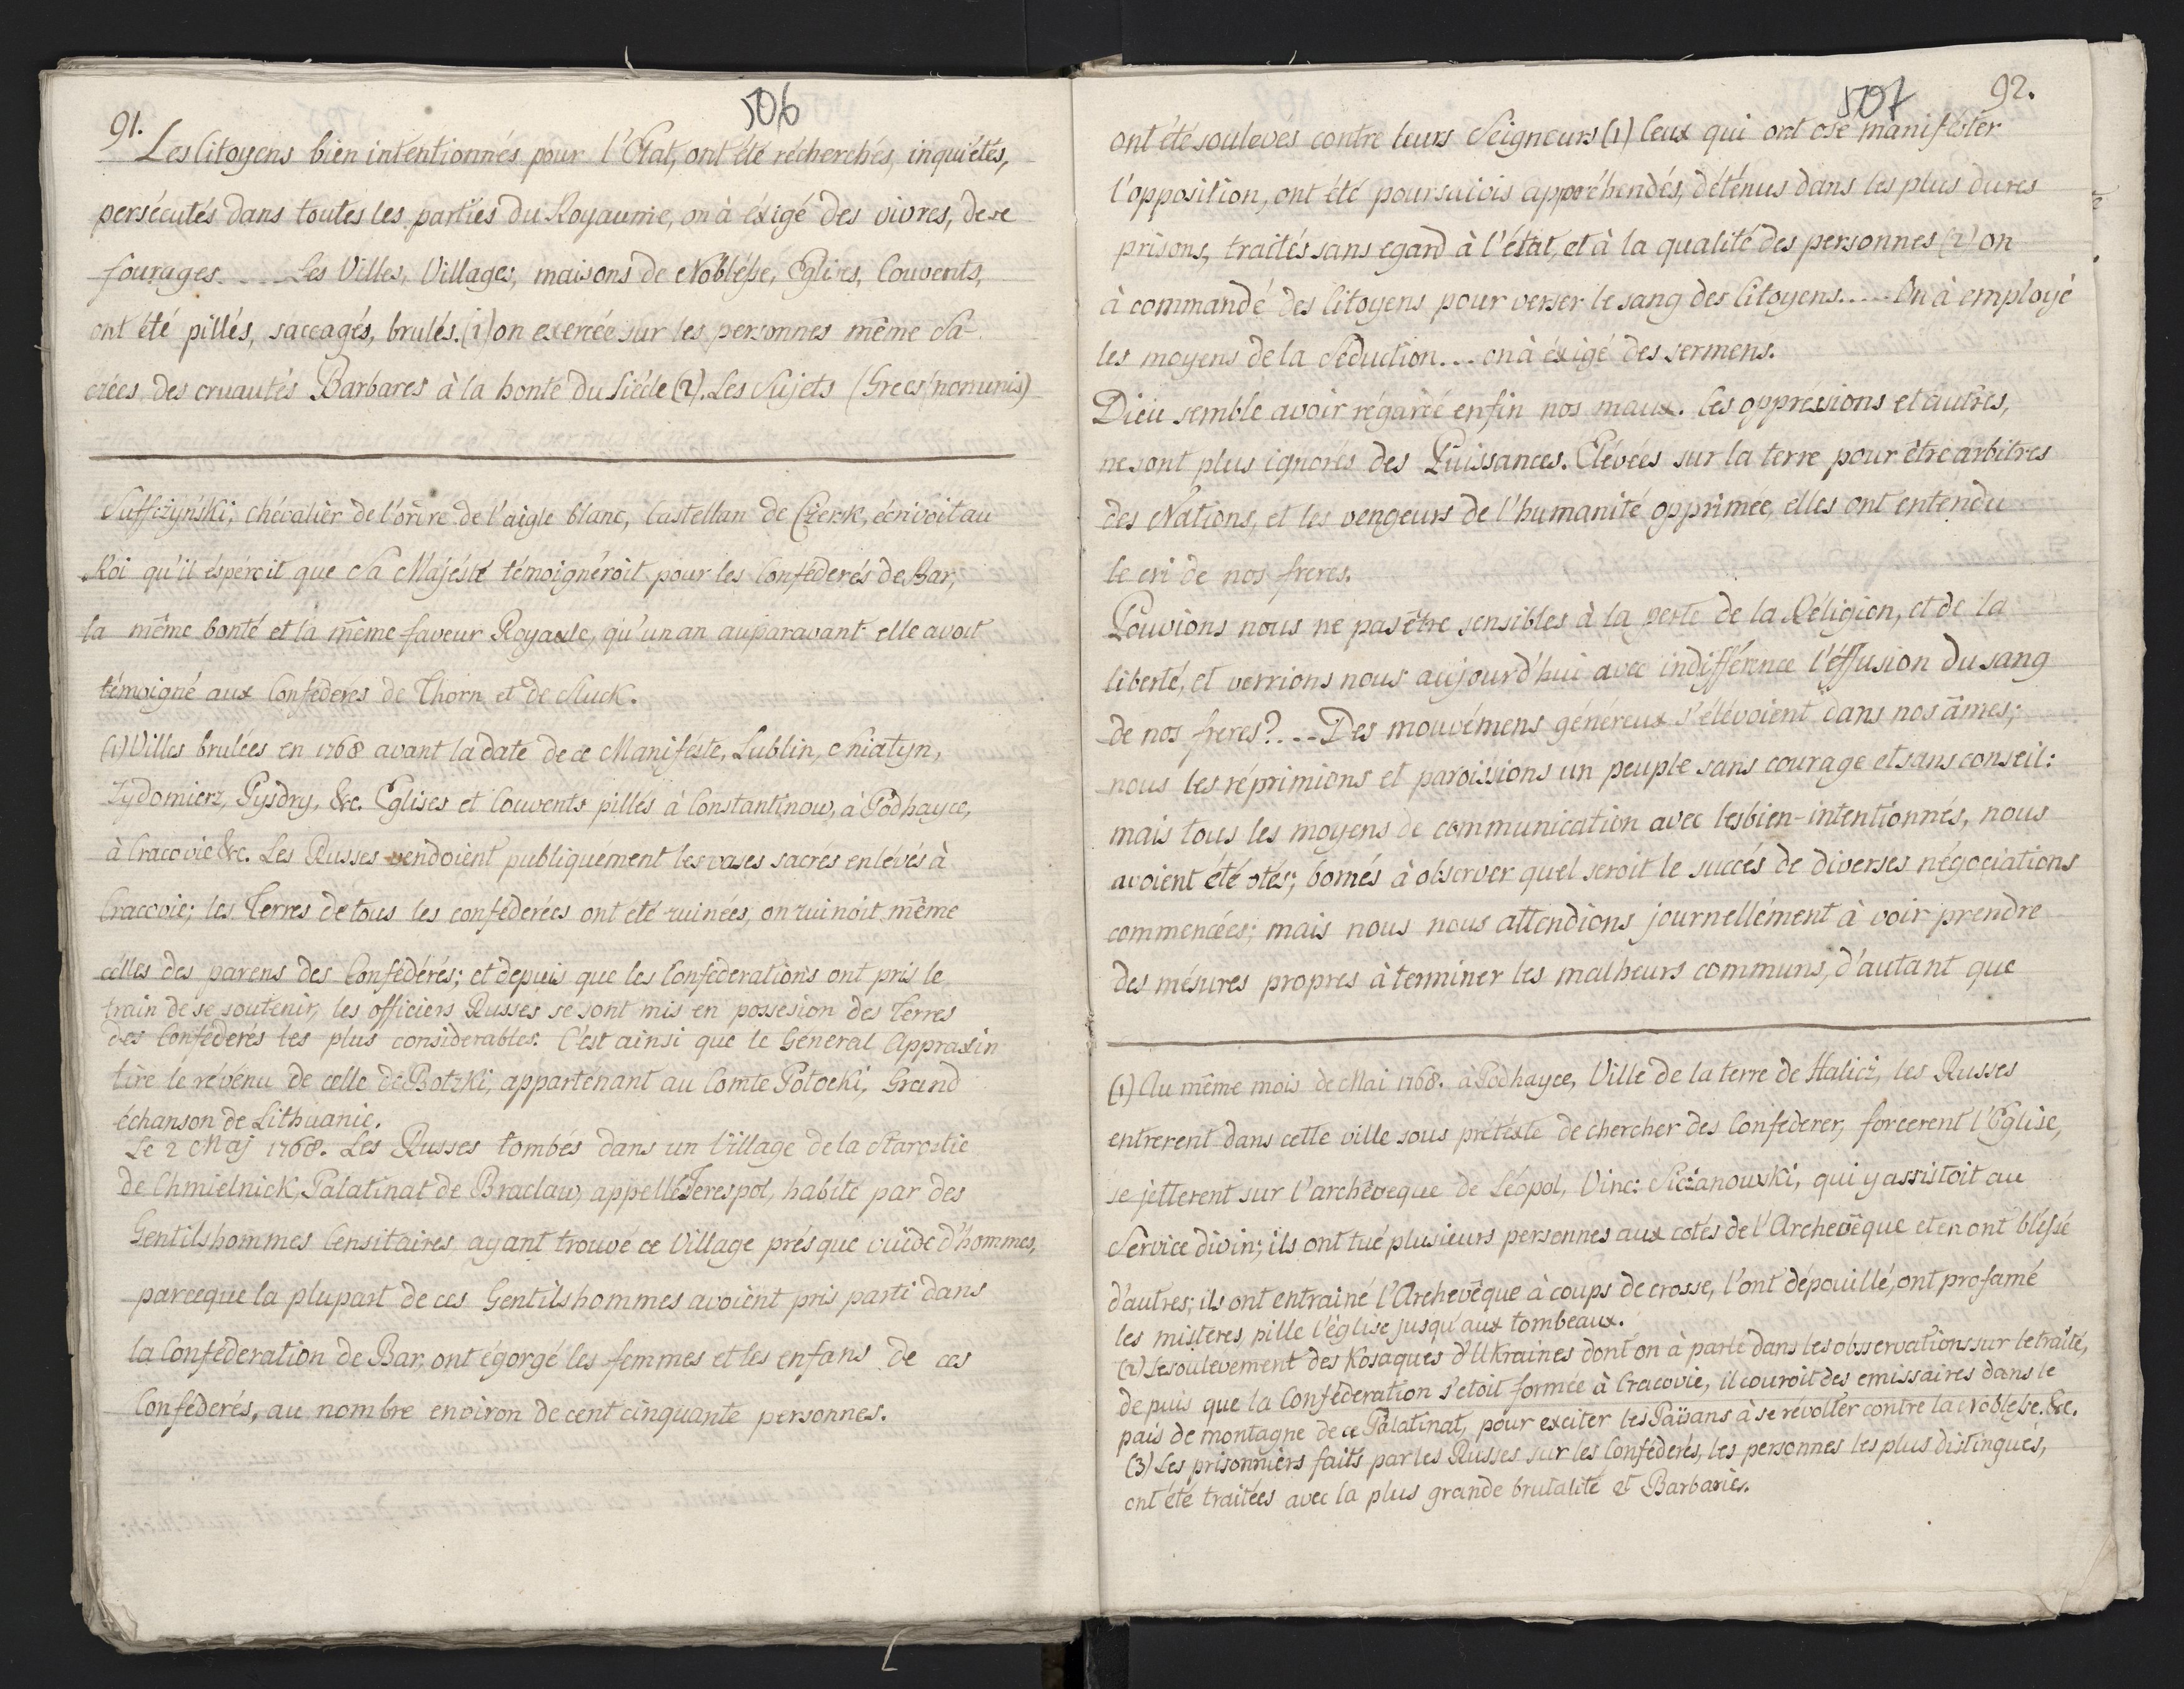 506
91.
Les Citoyens bien intentionnés pour l'Etat, ont été récherchés, inquiétés,
persécutés dans toutes les parties du Royaume, on à éxigé des vivres, de se
fourages..... Les Villes, Villages, maisons de Noblésse, Eglises, Couvents,
ont été pillés, saccagés, brulés. (1) on exercée sur les personnes même Sa-
crées, des cruautés Barbares à la honte du Siécle (2). Les Sujets (Grecs nonunis)
Suffczyński, chévalier de l'ordre de l'aigle blanc, Castellan de Czersk, écrivoit au
Roi qu'il éspéroit que Sa Majésté témoignéroit pour les Confederés de Bar,
la même bonté et la même faveur Royale, qu'un an auparavant elle avoit
témoigné aux Confederés de Thorn et de Sluck.
(1) Villes brulées en 1768 avant la date de ce Maniféste, Lublin, Sniatyn,
Zydomierz, Pysdry, &c. Eglises et Couvents pillés à Constantinow, à Podhayce,
à Cracovie &c. Les Russes vendoient publiquément les vases sacrés enlévés à
Cracovie; les Terres de tous les conféderées ont été ruinées, on ruinoit même
célles des parens des Confédérés; et depuis que les Confederations ont pris le
train de se soutenir, les officiers Russes se sont mis en possesion des Terres
des Conféderés les plus considerables. C'est ainsi que le Géneral Appraxin
tire le révénu de celle de Botzki, appartenant au Comte Potocki, Grand
échanson de Lithuanie.
Le 2 Maj 1768. Les Russes tombés dans un Village de la Starostie
de Chmielnick, Palatinat de Braclaw, appellé Terespol, habité par des
Gentilshommes Censitaires, ayant trouvé ce Village présque vuide d'hommes,
parceque la plupart de ces Gentilshommes avoient pris parti dans
la Conféderation de Bar, ont égorgé les femmes et les enfans de ces
Conféderés, au nombre environ de cent cinquante personnes.
507
92.
ont été soulevés contre leurs Seigneurs (1) Ceux qui ont osé manifester
l'opposition, ont été poursuivis appréhendés, déténus dans les plus dures
prisons, traités sans egard à l'état, et à la qualité des personnes (2) on
à commandé des Citoyens pour verser le sang des Citoyens..... On à employé
les moyens de la Séduction.... on à éxigé des sermens.
Dieu semble avoir régardé enfin nos maux. Les oppressions et autres,
ne sont plus ignorés des Puissances. Elévées sur la terre pour être arbitres
des Nations, et les vengeurs de l'humanité opprimée, elles ont entendu
le cri de nos freres.
Pouvions nous ne pas être sensibles à la perte de la Réligion, et de la
liberté, et verrions nous aujourd'hui avec indifférence l'éffusion du sang
de nos freres?.... Des mouvémens généreux s'élévoient dans nos âmes;
nous les réprimions et paroissions un peuple sans courage et sans conseil:
mais tous les moyens de communication avec les bien-intentionnés, nous
avoient été otés; bornés à observer quel seroit le succés de diverses négociations
commencées; mais nous nous attendions journellément à voir prendre
des mésures propres à terminer les malheurs communs, d'autant que
(1) Au même mois de Mai 1768. à Podhayce, Ville de la terre de Halicz, les Russes
entrerent dans cette ville sous prétéxte de chercher des Confederer, forcerent l'Eglise,
se jetterent sur l'archêveque de Léopol, Vinc: Siczanowski, qui y assistoit au
Service divin; ils ont tué plusieurs personnes aux cotés de l'Archevêque et en ont blessé
d'autres; ils ont entrainé l'Archevêque à coups de crosse, l'ont dépouillé, ont profamé
les misteres, pille l'église jusqu'aux tombeaux.
(2) Le soulevement des Kosaques d'Ukraines dont on à parlé dans les observations sur le traité,
de puis que la Conféderation s'etoit formée à Cracovie, il couroit des emissaires dans le
pais de montagne de ce Palatinat, pour exciter les Païsans à se révolter contre la Noblesse. &c.
(3) Les prisonniers faits par les Russes sur les Conféderés, les personnes les plus distingués,
ont été traitées avec la plus grande brutalité et Barbaries.